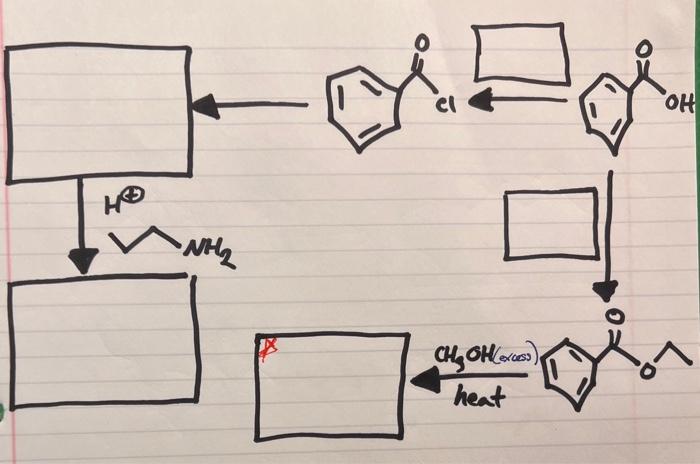 O
O
Cl
OH
H⊕
NH2
O
CH3OH(excess)
O
heat